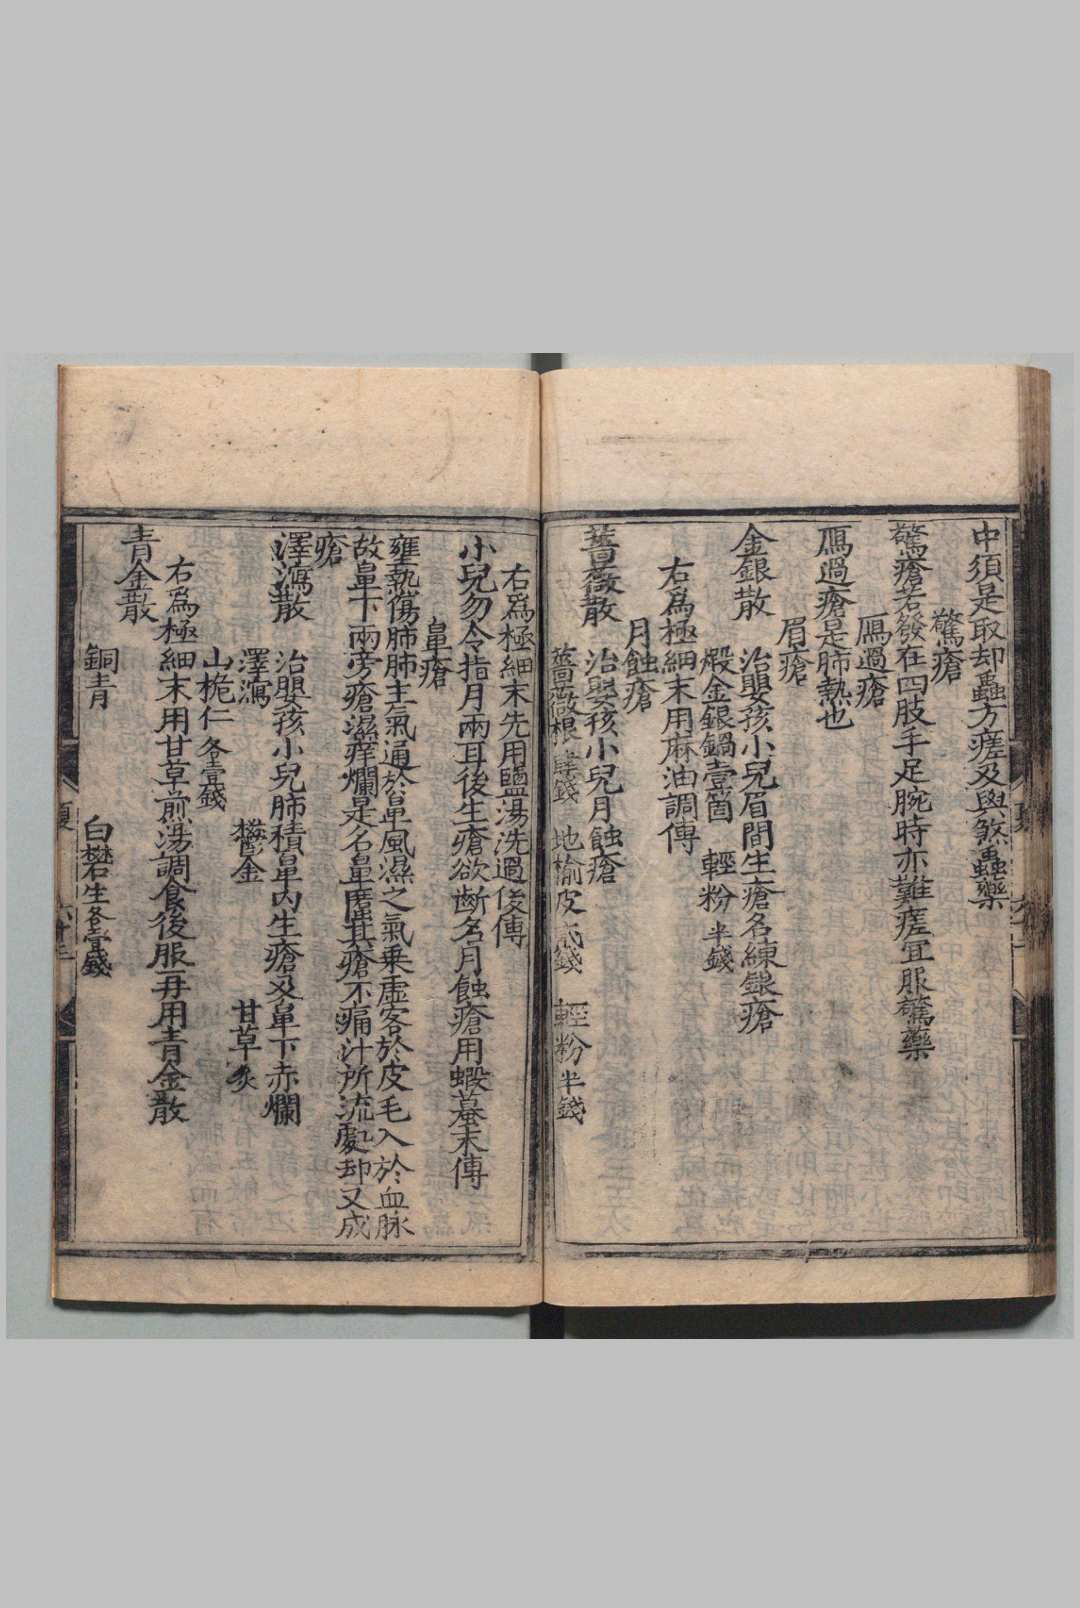 中須是取却蟲方瘥及與煞蟲藥
驚瘡
驚瘡若發在四肢手足腕時亦難瘥宜服驚藥
鴈過瘡
鴈過瘡是肺熱也
眉瘡
金銀散
治嬰孩小兒眉間生瘡名練銀瘡
煅金銀鍋壹箇 輕粉半錢
右為極細末用麻油調傅
月蝕瘡
薔薇散
治嬰孩小兒月蝕瘡
薔薇根 錢 地榆皮 錢 輕粉半錢
右為極細末先用鹽湯洗過後傅
小兒勿令指月兩耳後生瘡欲斷名月蝕瘡用蝦蟇末傅
鼻瘡
壅熱傷肺肺主氣通於鼻風濕之氣乗虛客於皮毛入於血脉
故鼻下兩旁瘡濕痒爛是名鼻䘌其瘡不痛汁所流處却又成
瘡
澤瀉散
治嬰孩小兒肺積鼻内生瘡及鼻下赤爛
澤瀉 欝金 甘草炙
山梔仁各壹錢
右為極細末用甘草煎湯調食後服再用青金散
青金散
銅青 白礬生各壹錢